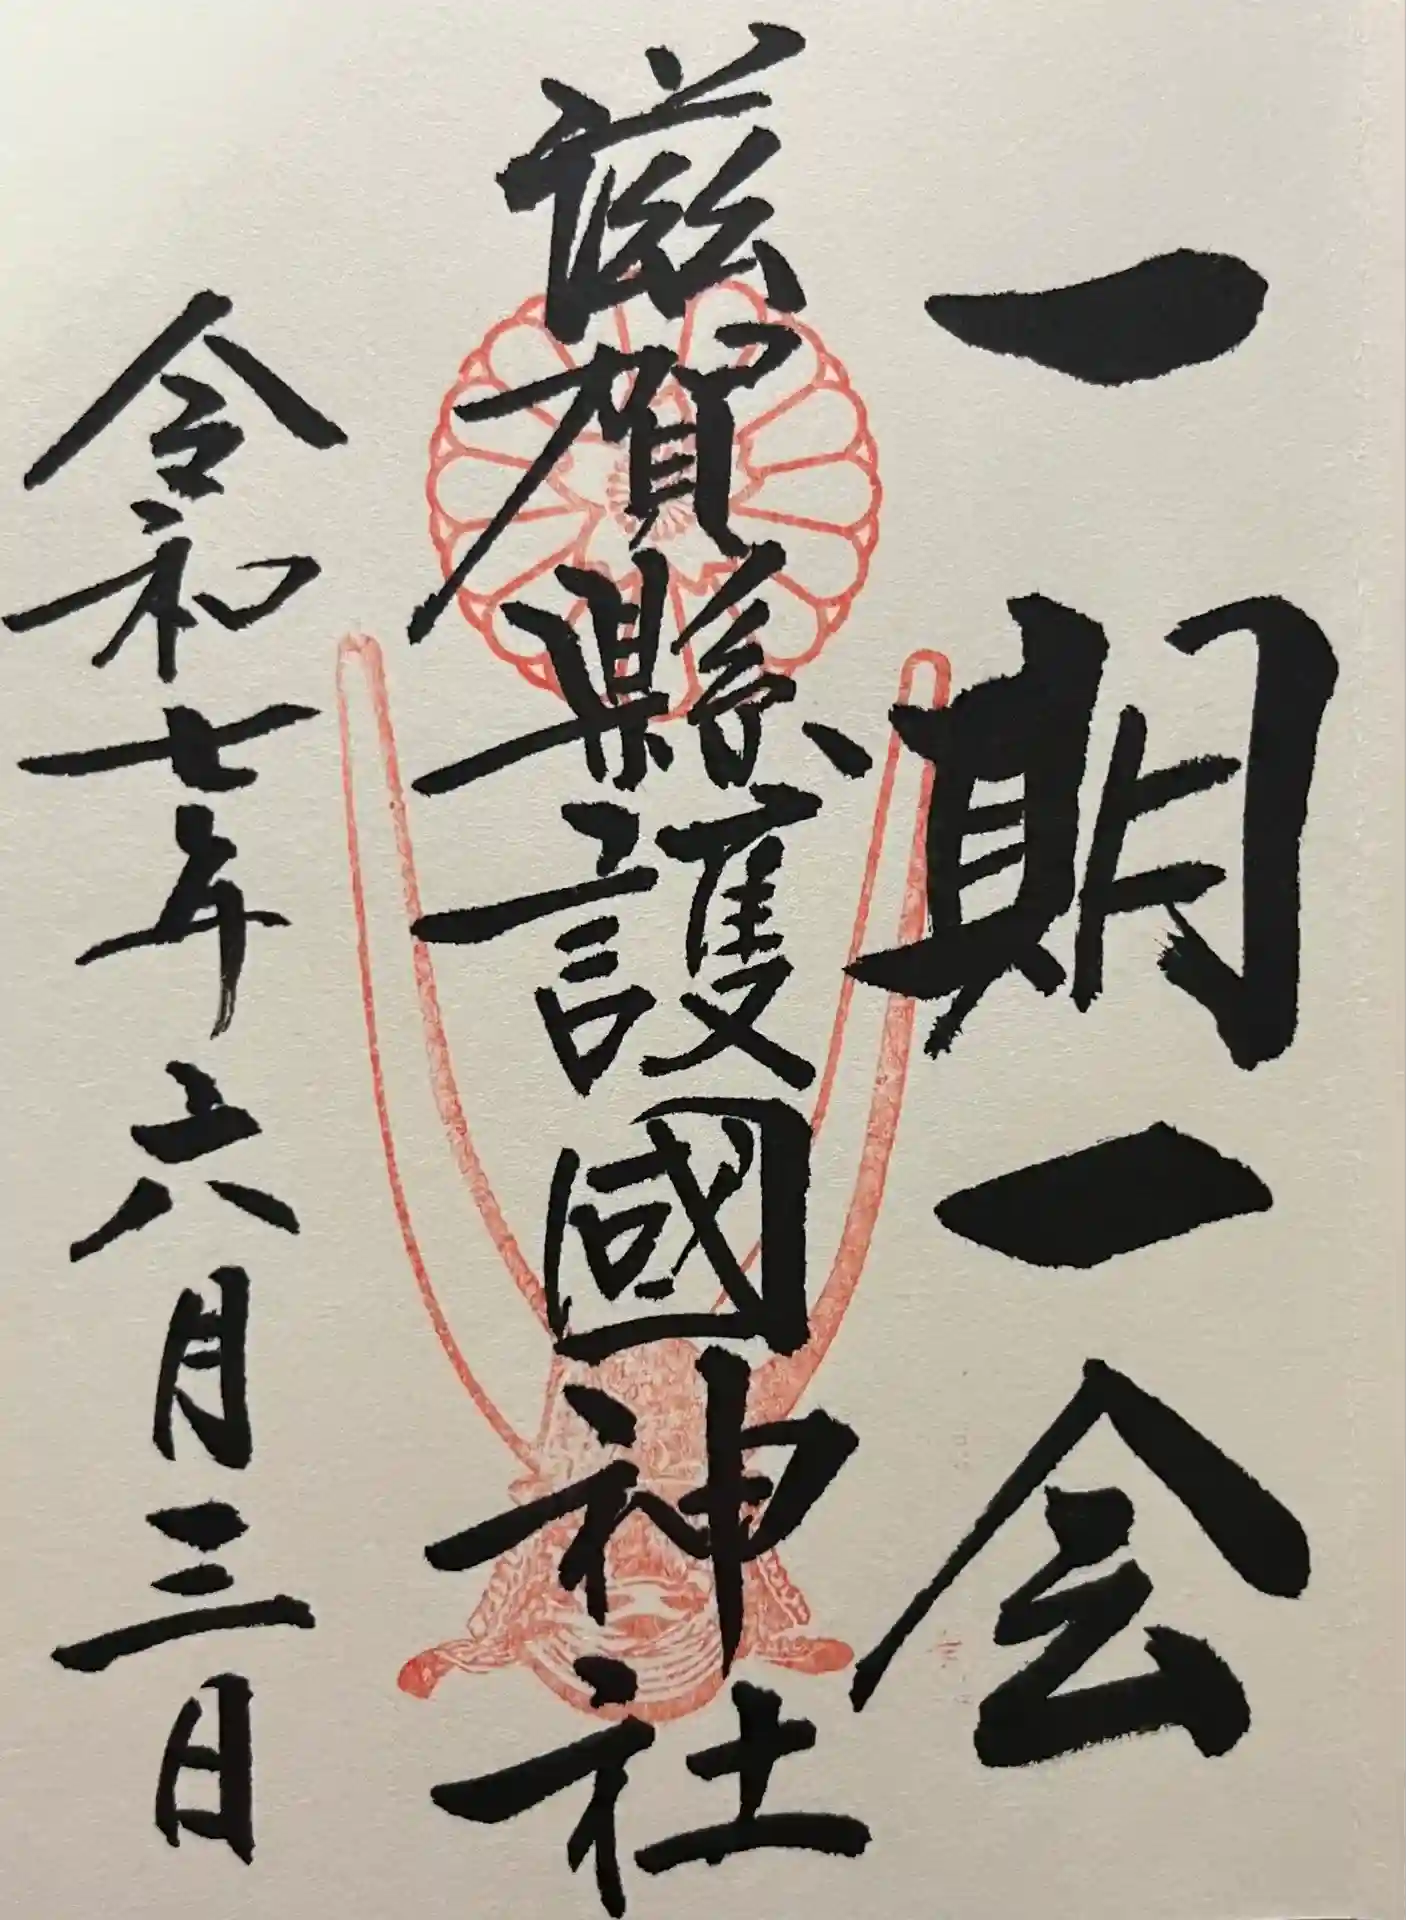 一期一会
滋賀縣護國神社
令和七年六月三日